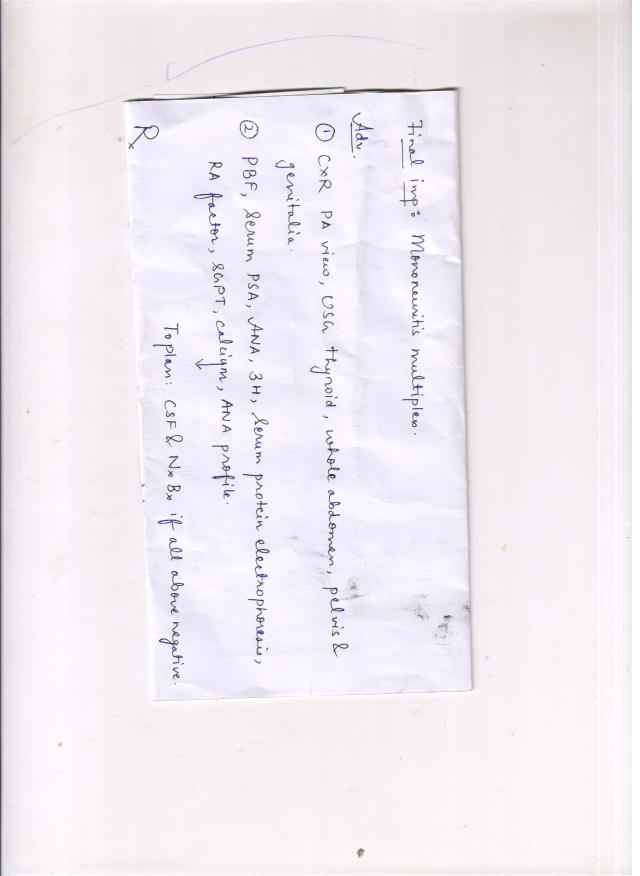 Final imp: Mononeuritis multiplex.
Adv.
① CXR PA view, USG thyroid, whole abdomen, pelvis &
genitalia.
② PBF, Serum PSA, ANA, 3H, Serum protein electrophoresis,
RA factor, SGPT, calcium, ANA profile.
↓
To plan: CSF & Nx Bx if all above negative.
Rx